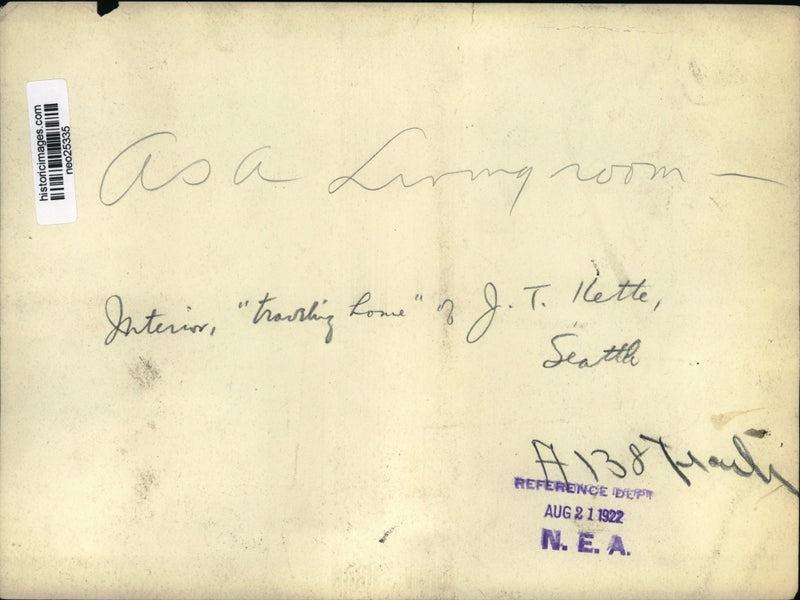 historicimages.com
neo25335
As A Living room —
Interior, "traveling home" of J. T. Kette,
Seattle
A 138
REFERENCE DEPT
AUG 21 1922
N. E. A.